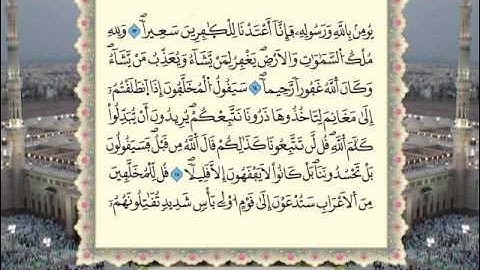 يُومِنۢ بِاللَّهِ وَرَسُولِهِۦ فَإِنَّآ أَعْتَدْنَا لِلْكَٰفِرِينَ سَعِيراٗ ١٣ وَلِلهِ
مُلْكُ السَّمَٰوَٰتِ وَالَارْضِ يَغْفِرُ لِمَنْ يَّشَآءُ وَيُعَذِّبُ مَنْ يَّشَآءُ
وَكَانَ اللَّهُ غَفُوراٗ رَّحِيماٗ ١٤ سَيَقُولُ الْمُخَلَّفُونَ إِذَا اَنطَلَقْتُمُۥٓ
إِلَىٰ مَغَانِمَ لِتَاخُذُوهَا ذَرُونَا نَتَّبِعْكُمْ يُرِيدُونَ أَنْ يُّبَدِّلُوا
كَلَٰمَ اللَّهِ قُل لَّن تَتَّبِعُونَا كَذَٰلِكُمْ قَالَ اللَّهُ مِن قَبْلُ فَسَيَقُولُونَ
بَلْ تَحْسُدُونَنَا بَلْ كَانُوا لَا يَفْقَهُونَ إِلَّا قَلِيلاٗ ١٥ قُل لِّلْمُخَلَّفِينَ
مِنَ الَاعْرَابِ سَتُدْعَوْنَ إِلَىٰ قَوْمٍ اُوْلِي بَأْسٍ شَدِيدٍ تُقَٰتِلُونَهُمُۥٓ